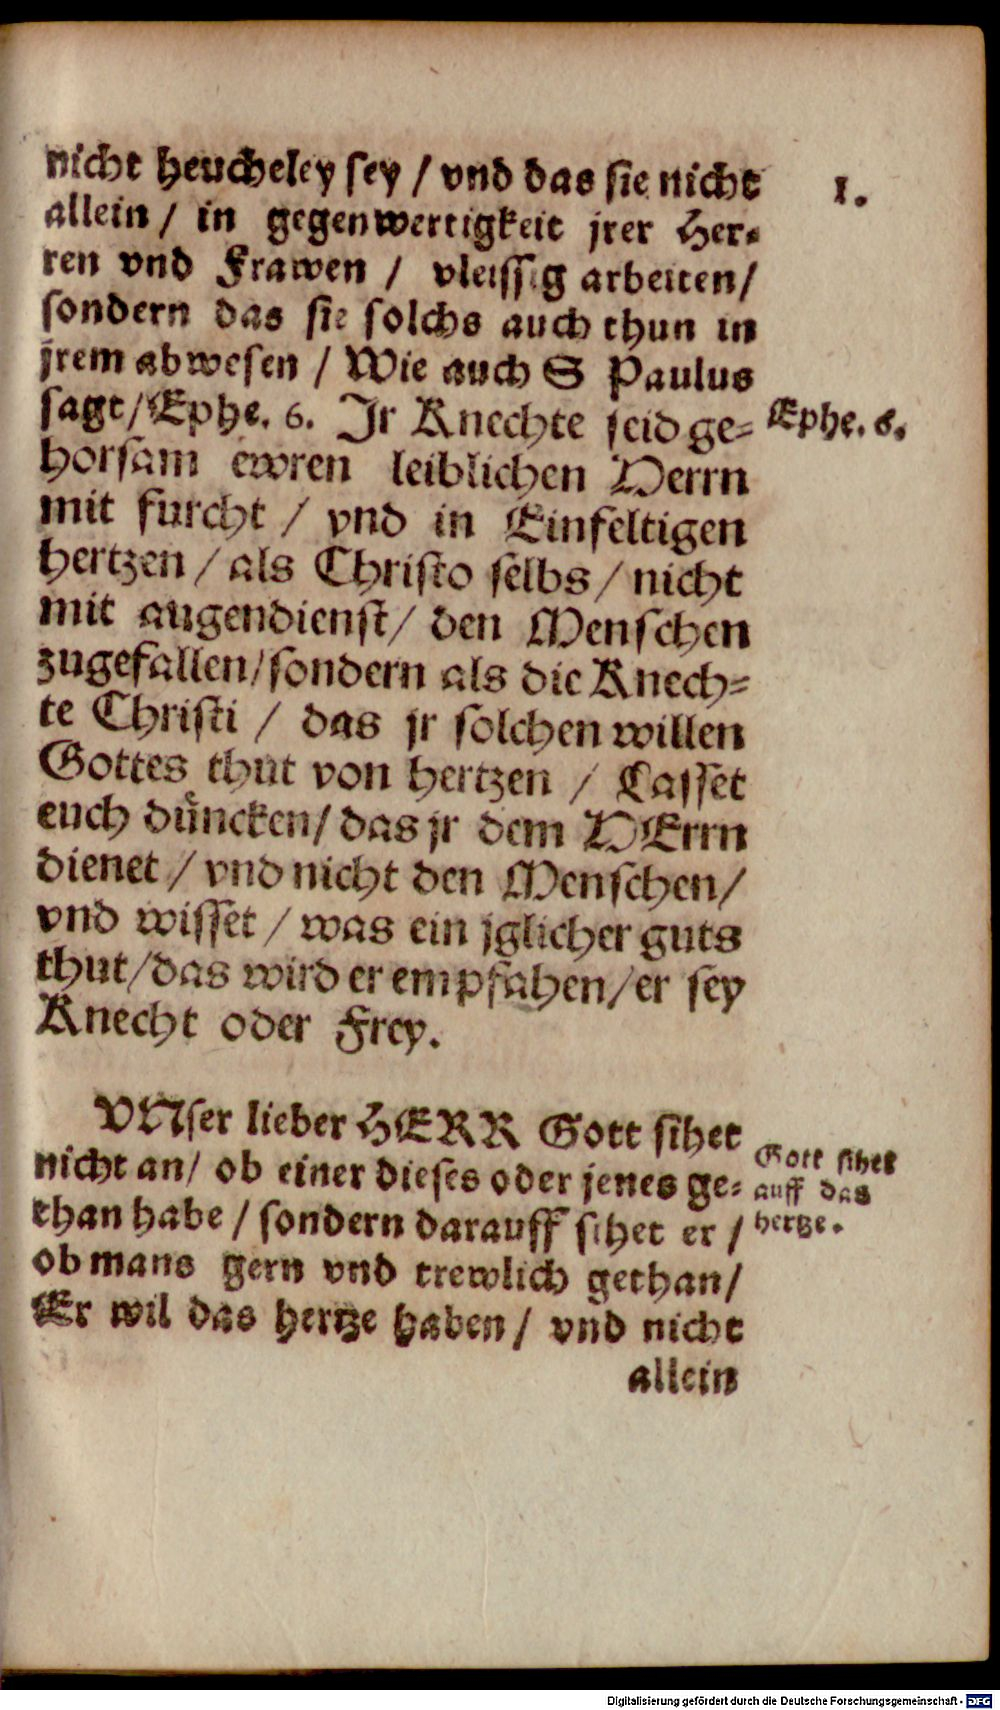 nicht heucheley sey / vnd das sie nicht
1.
allein / in gegenwertigkeit jrer Her-
ren vnd Frawen / vleissig arbeiten/
sondern das sie solchs auch thun in
jrem abwesen / Wie auch S Paulus
sagt/ Ephe. 6. Jr Knechte seid ge-
Ephe. 6.
horsam ewren leiblichen Herrn
mit furcht / vnd in Einfeltigen
hertzen / als Christo selbs / nicht
mit augendienst/ den Menschen
zugefallen/sondern als die Knech-
te Christi / das jr solchen willen
Gottes thut von hertzen / Lasset
euch duͤncken/ das jr dem HErrn
dienet / vnd nicht den Menschen/
vnd wisset / was ein jglicher guts
thut/das wird er empfahen/er sey
Knecht oder Frey.
VNser lieber HERR Gott sihet
nicht an/ ob einer dieses oder jenes ge-
than habe / sondern darauff sihet er /
ob mans gern vnd trewlich gethan/
Er wil das hertze haben/ vnd nicht
Gott sihet
auff das
hertze.
allein
Digitalisierung gefördert durch die Deutsche Forschungsgemeinschaft - DFG